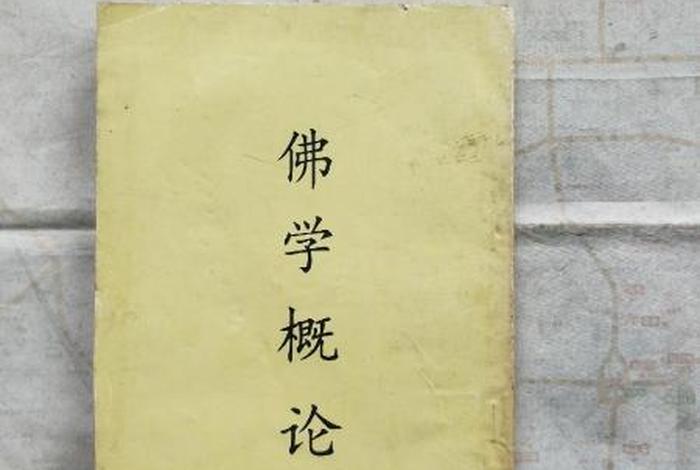 佛学概论